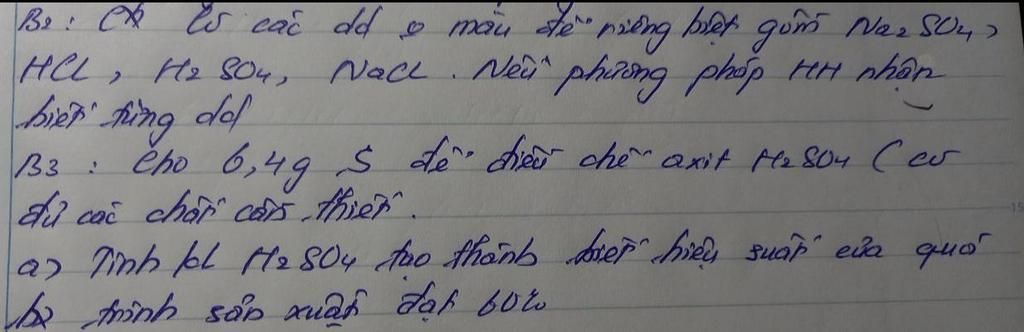 B2: Có các dd o màu để riêng biệt gồm Na2SO4,
HCl, H2SO4, NaCl. Nêu phương pháp HH nhận
biết từng dd
B3: Cho 6,4g S để điều chế axit H2SO4 (có
đủ các chất cần thiết.
a) Tính kl H2SO4 tạo thành biết hiệu suất của quá
trình sản xuất đạt 60%